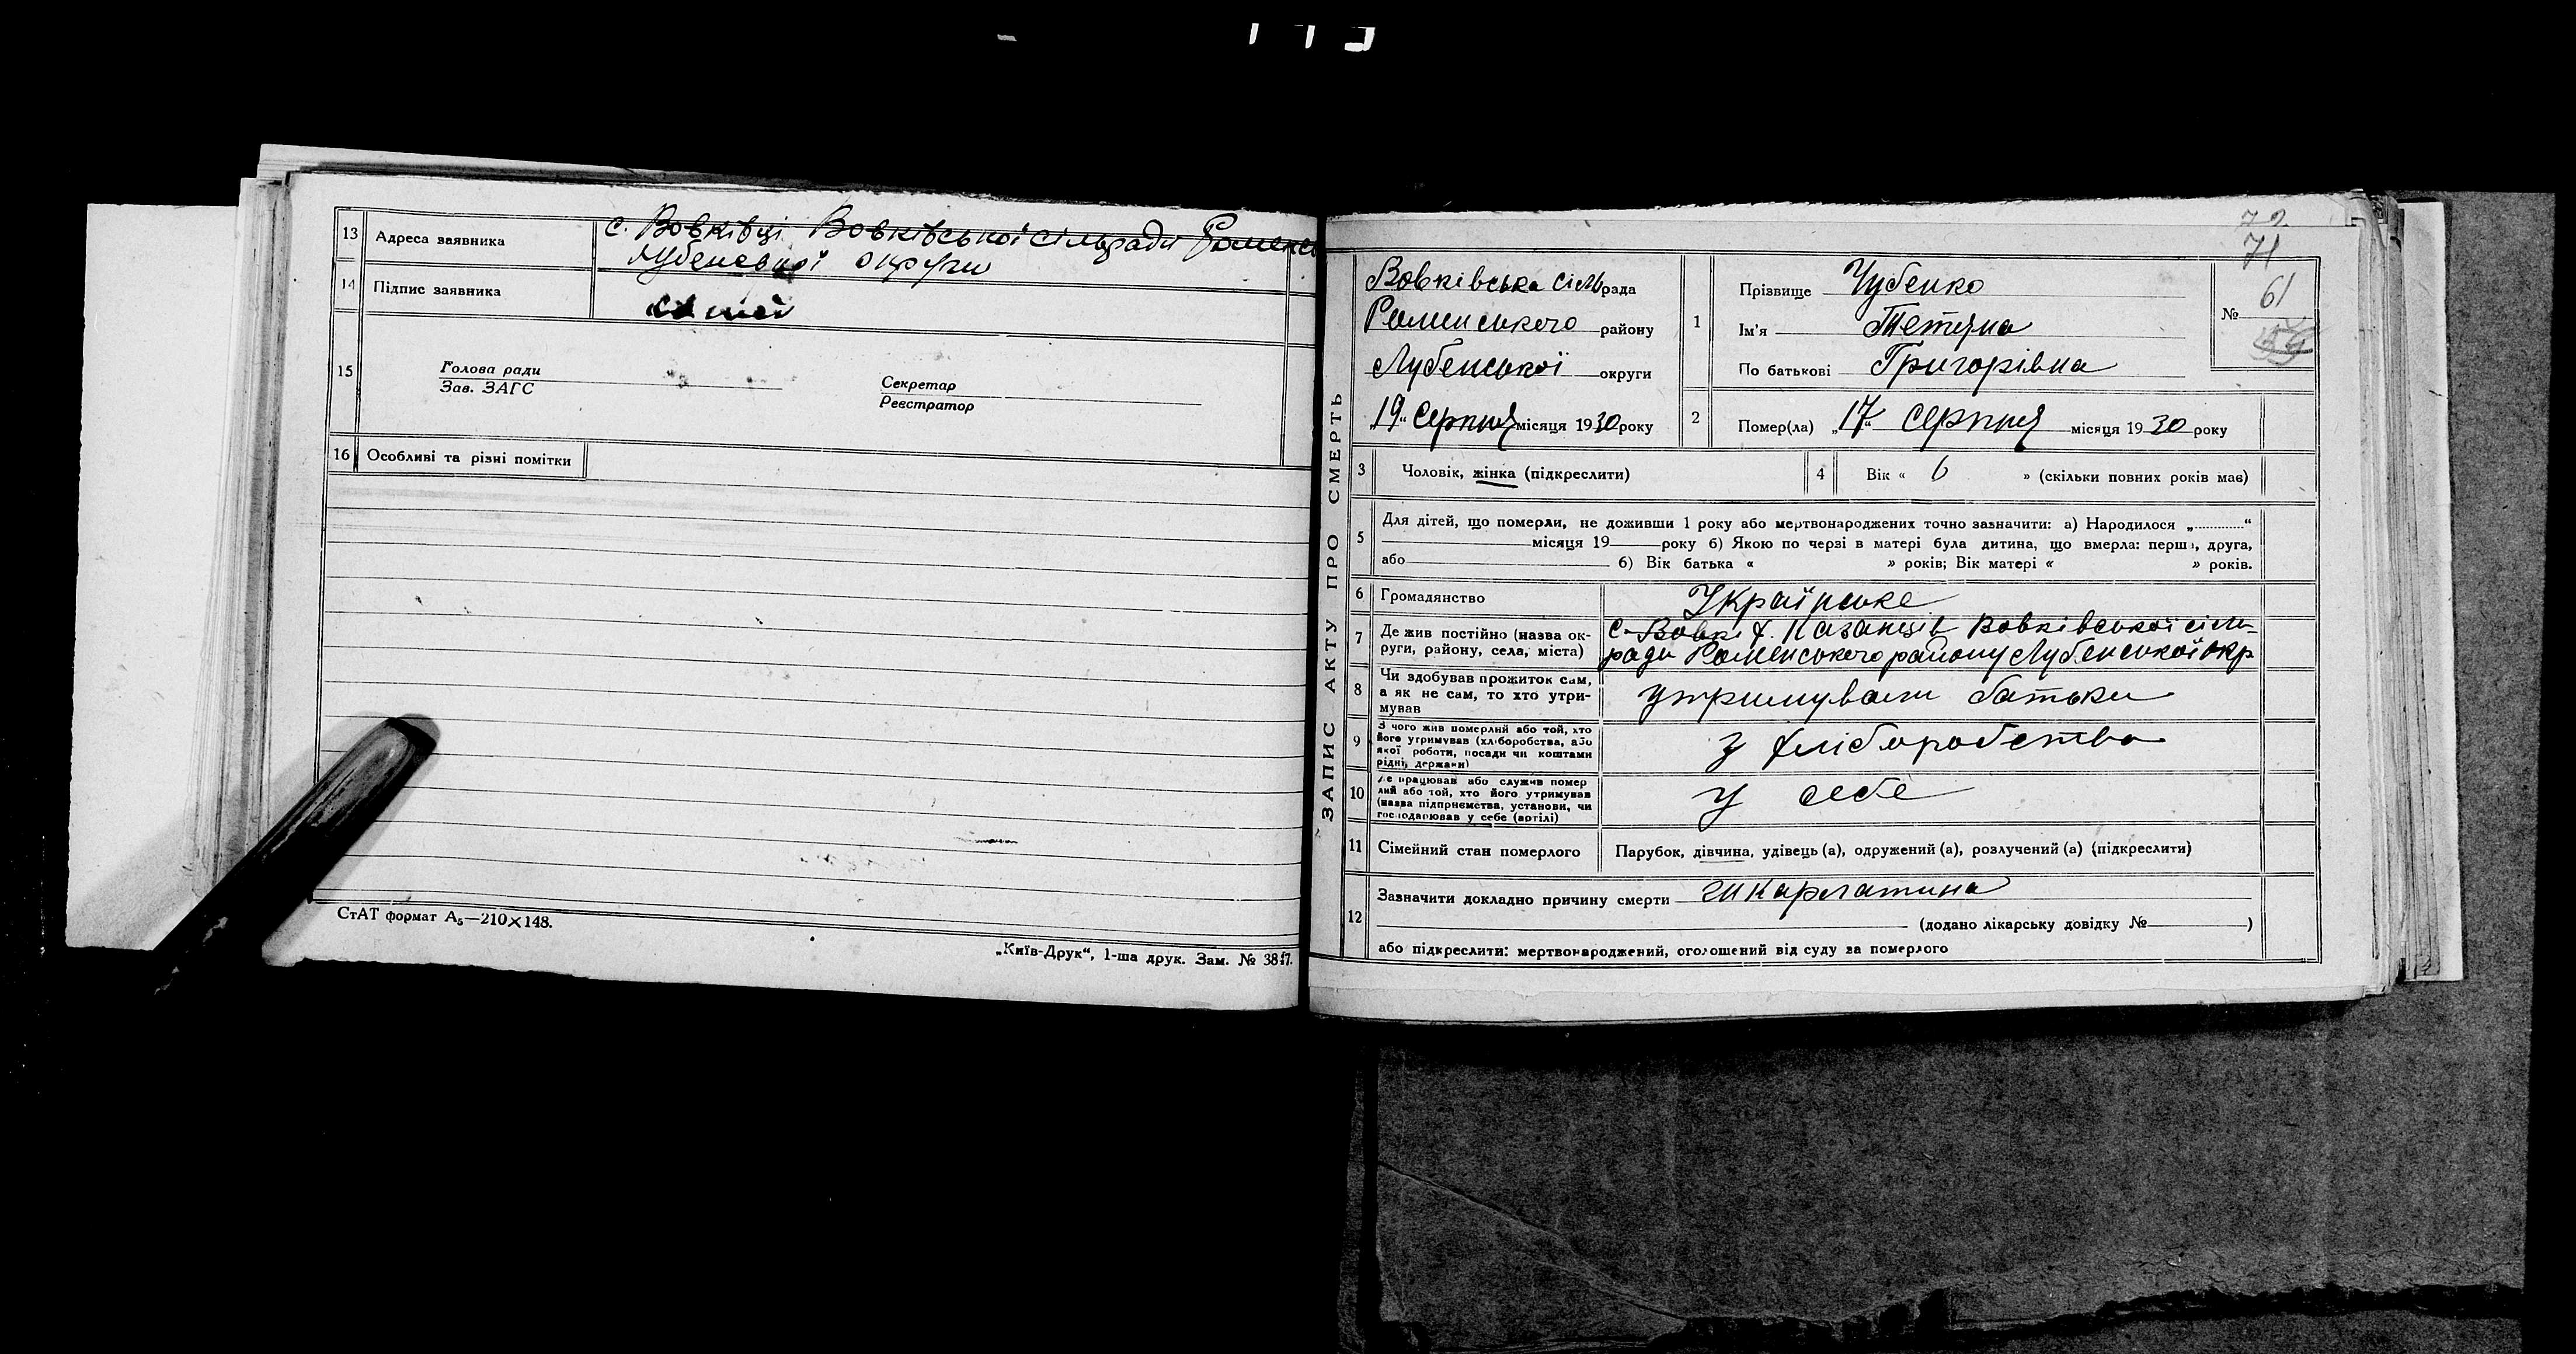 13 Адреса заявника с. Вовківці Вовківської сільради Роменсь
Лубенської округи
14 Підпис заявника
15
Голова ради
Зав. ЗАГС
Секретар
Реєстратор
16 Особливі та різні помітки
СтАТ формат А₅—210×148.
„Київ-Друк“, 1-ша друк. Зам. №
ЗАПИС АКТУ ПРО СМЕРТЬ
72
71
Вовківська сільрада
Роменського району
Лубенської округи
„19“ Серпня місяця 1930 року
1 Прізвище Чубенко
Ім'я Тетяна
По батькові Григорівна
№ 61
2 Помер(ла) „17“ Серпня місяця 1930 року
3 Чоловік, жінка (підкреслити)
4 Вік « 6 » (скільки повних років мав)
5 Для дітей, що померли, не доживши 1 року або мертвонароджених точно зазначити: а) Народилося „.............“
місяця 19 року б) Якою по черзі в матері була дитина, що вмерла: перша, друга,
або б) Вік батька « » років; Вік матері « » років.
6 Громадянство Українське
7 Де жив постійно (назва ок-
руги, району, села, міста)
с. Вовкі х. Казанців Вовківської сіль-
ради Роменського району Лубенської окр
8 Чи здобував прожиток сам,
а як не сам, то хто утри-
мував
утримували батьки
9 З чого жив померлий або той, хто
його утримував (хліборобства, або
якої роботи, посади чи коштами
рідні, держави)
з хліборобства
10 Де працював або служив помер
лий або той, хто його утримував
(назва підприємства, установи, чи
господарював у себе (артілі)
у себе
11 Сімейний стан померлого Парубок, дівчина, удівець (а), одружений (а), розлучений (а) (підкреслити)
12 Зазначити докладно причину смерти шкарлатина
(додано лікарську довідку № )
або підкреслити: мертвонароджений, оголошений від суду за померлого